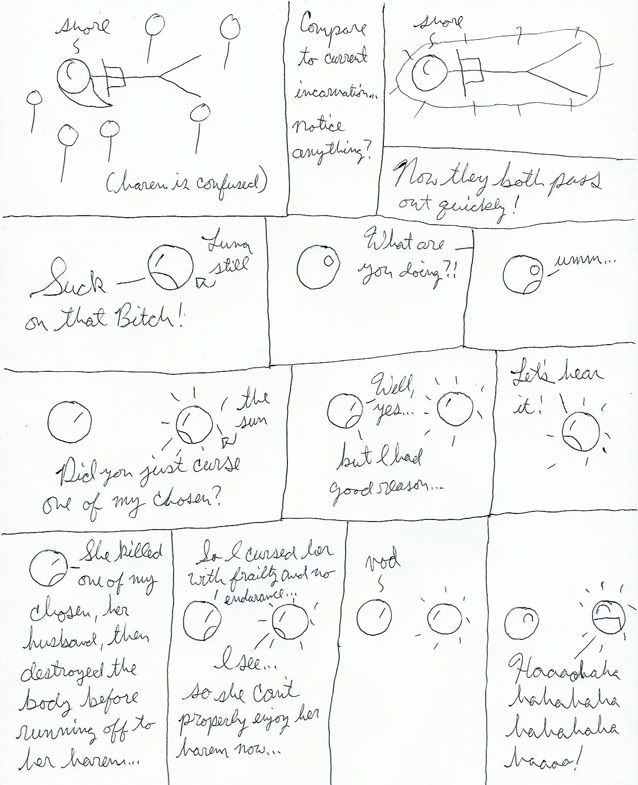 snore
(harem is confused)
Compare
to current
incarnation...
notice
anything?
snore
Now they both pass
out quickly!
Suck
on that Bitch!
Luna
still
What are
you doing?!
umm...
the
sun
Did you just curse
one of my chosen?
Well,
yes...
but I had
good reason...
Let's hear
it!
She killed
one of my
chosen, her
husband, then
destroyed the
body before
running off to
her harem...
So I cursed her
with frailty and no
endurance...
I see...
so she can't
properly enjoy her
harem now...
nod
Haaaahaha
hahahaha
hahahaha
haaaa!